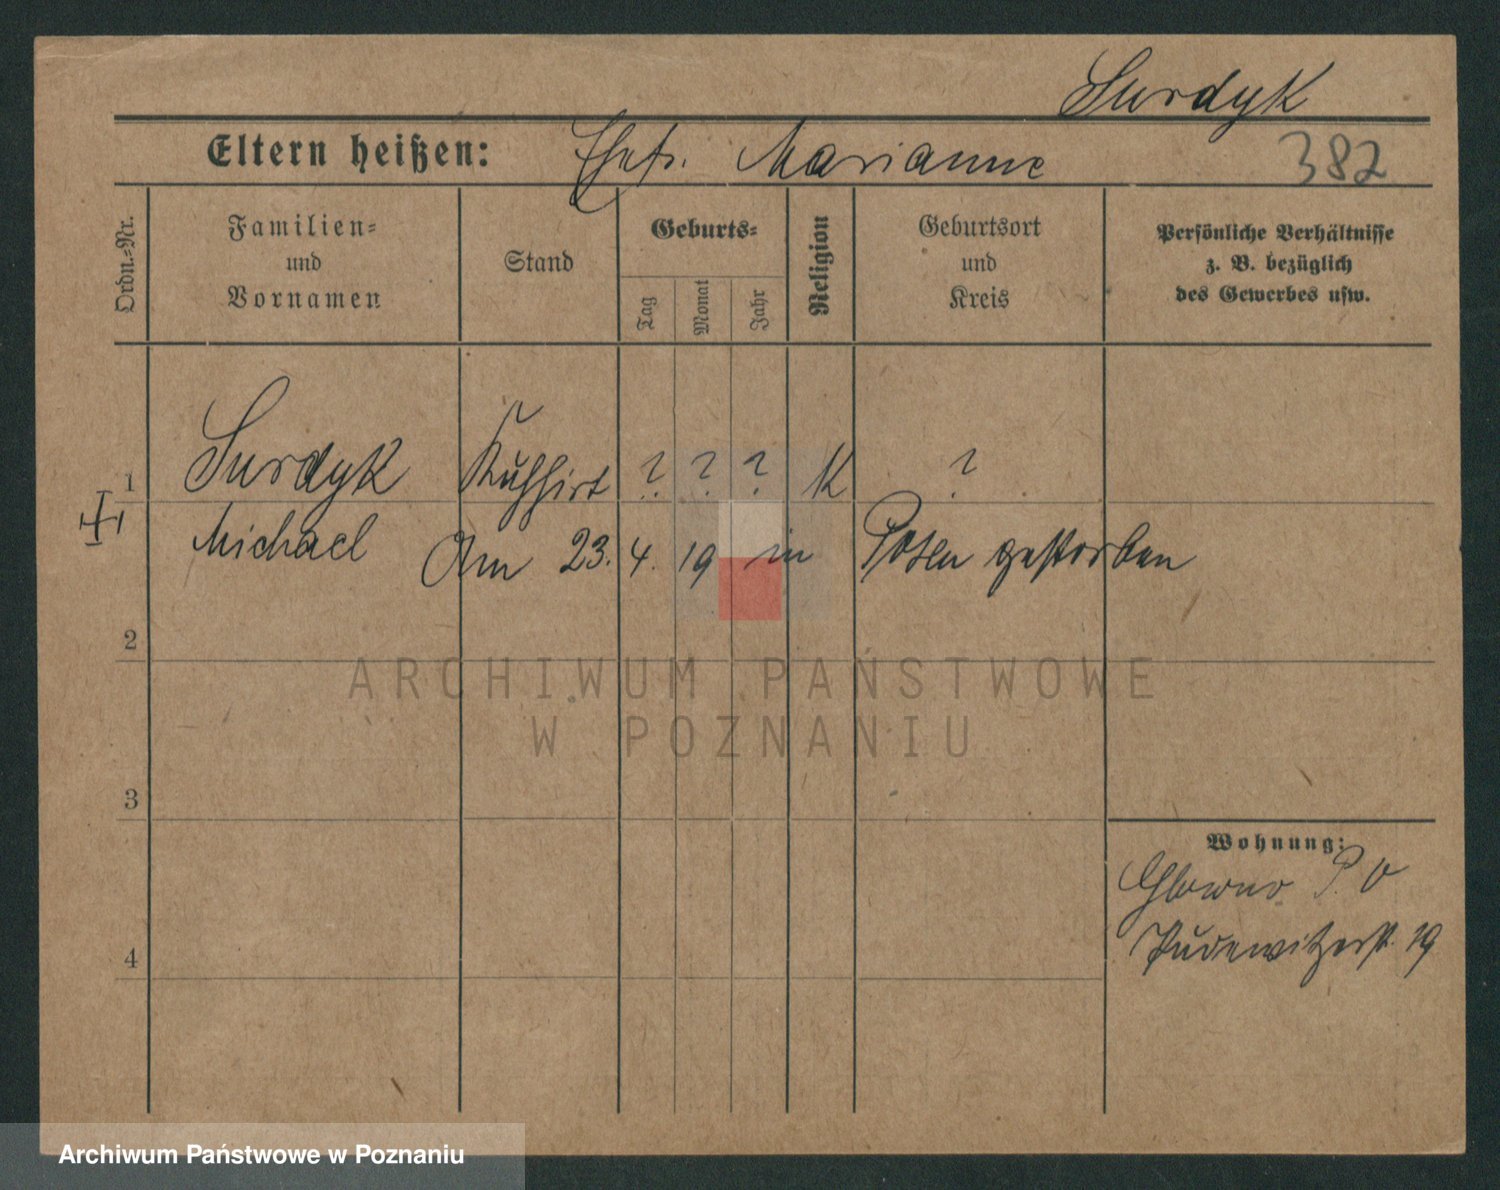 Surdyk
Eltern heißen: Marianne 382
Ordn.-Nr.
Familien-
und
Vornamen
Stand
Geburts-
Tag
Monat
Jahr
Religion
Geburtsort
und
Kreis
Persönliche Verhältnisse
z. B. bezüglich
des Gewerbes usw.
1 Surdyk Kuhhirt ? ? ? K ?
Michael Am 23. 4. 19 in Posen gestorben
2
ARCHIWUM PAŃSTWOWE
W POZNANIU
3
Wohnung:
Glowno P. O
4 Pudewitzerst. 19
Archiwum Państwowe w Poznaniu